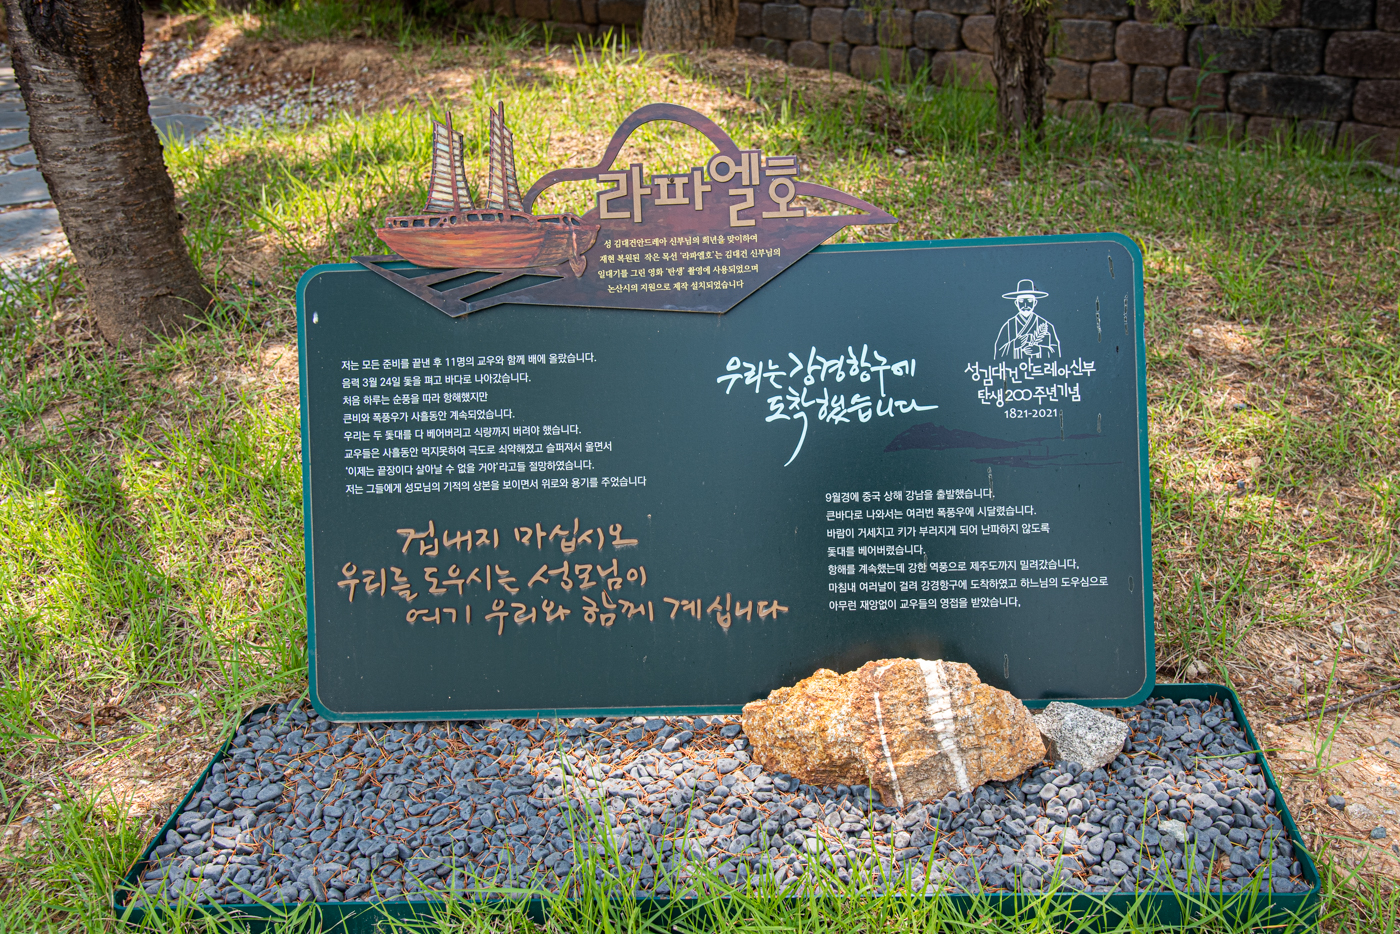 라파엘호
성 김대건안드레아 신부님의 희년을 맞이하여
재현 복원된 작은 목선 '라파엘호'는 김대건 신부님의
일대기를 그린 영화 '탄생' 촬영에 사용되었으며
논산시의 지원으로 제작 설치되었습니다
저는 모든 준비를 끝낸 후 11명의 교우와 함께 배에 올랐습니다.
음력 3월 24일 돛을 펴고 바다로 나아갔습니다.
처음 하루는 순풍을 따라 항해했지만
큰비와 폭풍우가 사흘동안 계속되었습니다.
우리는 두 돛대를 다 베어버리고 식량까지 버려야 했습니다.
교우들은 사흘동안 먹지못하여 극도로 쇠약해졌고 슬퍼져서 울면서
'이제는 끝장이다 살아날 수 없을 거야'라고들 절망하였습니다.
저는 그들에게 성모님의 기적의 상본을 보이면서 위로와 용기를 주었습니다
겁내지 마십시오
우리를 도우시는 성모님이
여기 우리와 함께 계십니다
우리는 강경항구에
도착했습니다
성김대건안드레아신부
탄생200주년기념
1821-2021
9월경에 중국 상해 강남을 출발했습니다.
큰바다로 나와서는 여러번 폭풍우에 시달렸습니다.
바람이 거세지고 키가 부러지게 되어 난파하지 않도록
돛대를 베어버렸습니다.
항해를 계속했는데 강한 역풍으로 제주도까지 밀려갔습니다.
마침내 여러날이 걸려 강경항구에 도착하였고 하느님의 도우심으로
아무런 재앙없이 교우들의 영접을 받았습니다.